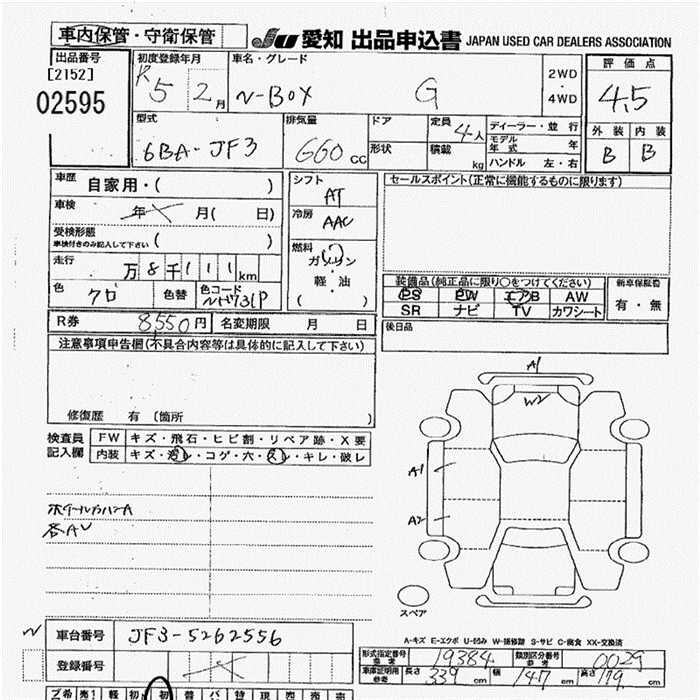 車内保管・守衛保管
JU 愛知 出品申込書 JAPAN USED CAR DEALERS ASSOCIATION
出品番号
[2152]
02595
初度登録年月
R5 2月
車名・グレード
N-BOX G
2WD
・
4WD
評価点
4.5
外装 内装
B B
型式
6BA-JF3
排気量
660 CC
ドア
形状
定員 4人
積載 kg
ディーラー・並行
モデル年式 年
ハンドル 左・右
車歴 自家用・( )
車検 年 月( 日)
受検形態
車検付きのみ記入して下さい ( )
走行 万8千111km
色 クロ 色替 色コード NH731P
シフト
AT
冷房
AAC
燃料
ガソリン
・
軽・油
・
( )
セールスポイント(正常に機能するものに限ります)
装備品(純正品に限り○をつけてください)
PS PW エアB AW
SR ナビ TV カワシート
新車保証書
有・無
R券 8550円 名変期限 月 日
後日品
注意事項申告欄(不具合内容等は具体的に記入して下さい)
修復歴 有 (箇所 )
検査員
記入欄
FW キズ・飛石・ヒビ割・リペア跡・X要
内装 キズ・ヨゴレ・コゲ・穴・スレ・キレ・破レ
A1
W2
A1
A2
スペア
各AU
A-キズ E-エクボ U-凹み W-補修跡 S-サビ C-腐食 XX-交換済
車台番号 JF3-5262556
登録番号
形式指定番号
参考
19384
類別区分番号
参考
0029
車庫証明用
参考
長さ 339cm 幅 147cm 高さ 179cm